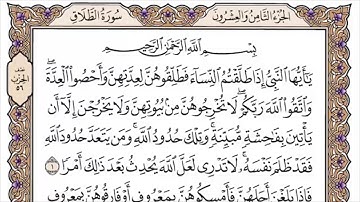 الجزء الثامن والعشرون
سورة الطلاق
نصف الحزب ٥٦
بِسْمِ ٱللَّهِ ٱلرَّحْمَٰنِ ٱلرَّحِيمِ
يَٰٓأَيُّهَا ٱلنَّبِىُّ إِذَا طَلَّقْتُمُ ٱلنِّسَآءَ فَطَلِّقُوهُنَّ لِعِدَّتِهِنَّ وَأَحْصُوا۟ ٱلْعِدَّةَ ۖ
وَٱتَّقُوا۟ ٱللَّهَ رَبَّكُمْ ۖ لَا تُخْرِجُوهُنَّ مِنۢ بُيُوتِهِنَّ وَلَا يَخْرُجْنَ إِلَّآ أَن
يَأْتِينَ بِفَٰحِشَةٍ مُّبَيِّنَةٍ ۚ وَتِلْكَ حُدُودُ ٱللَّهِ ۚ وَمَن يَتَعَدَّ حُدُودَ ٱللَّهِ
فَقَدْ ظَلَمَ نَفْسَهُۥ ۚ لَا تَدْرِى لَعَلَّ ٱللَّهَ يُحْدِثُ بَعْدَ ذَٰلِكَ أَمْرًا ١
فَإِذَا بَلَغْنَ أَجَلَهُنَّ فَأَمْسِكُوهُنَّ بِمَعْرُوفٍ أَوْ فَارِقُوهُنَّ بِمَعْرُوفٍ